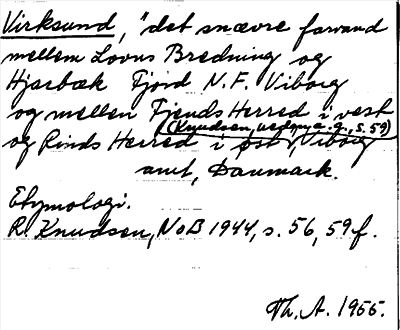 Virksund, "det snævre farvand
mellem Lovns Bredning og
Hjarbæk Fjord N.F. Viborg
og mellem Fjends Herred i vest
(Knudsen, a. a., s. 59)
og Rinds Herred i øst", Viborg
amt, Danmark.
Etymologi.
R. Knudsen, NoB 1944, s. 56, 59f.
Th. A. 1955.